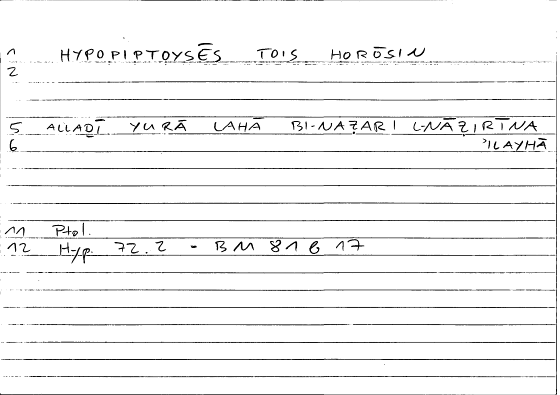 1 HYPOPIPTOYSĒS TOIS HORŌSIN
2
5 ALLAḎĪ YURĀ LAHĀ BI-NAẒARI L-NĀẒIRĪNA
6 ʾILAYHĀ
11 Ptol.
12 Hyp. 72.2 - BM 81 b 17